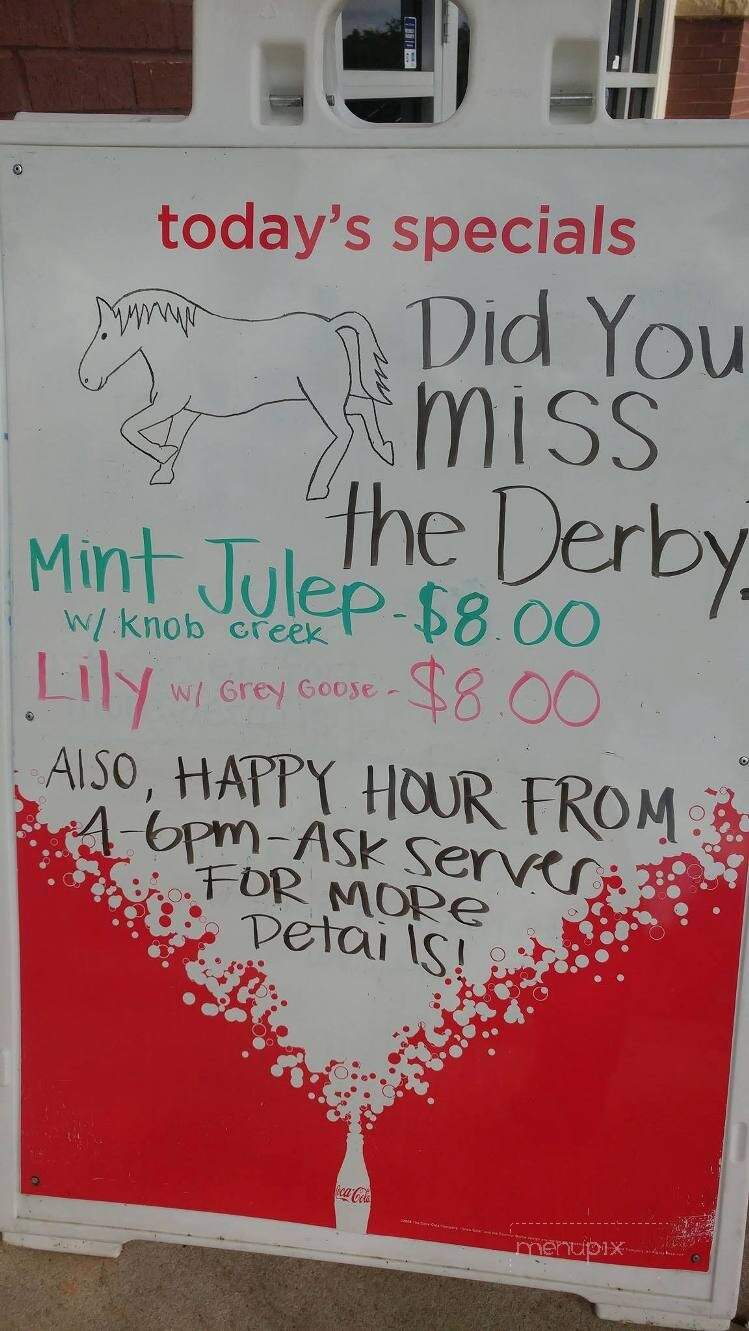 today's specials
Did You
miss
the Derby
Mint Julep - $8.00
w/ knob creek
Lily w/ Grey Goose - $8.00
AlSO, HAPPY HOUR FROM
4-6pm - ASK Server
FOR MORe
Details!
Coca-Cola
menupix